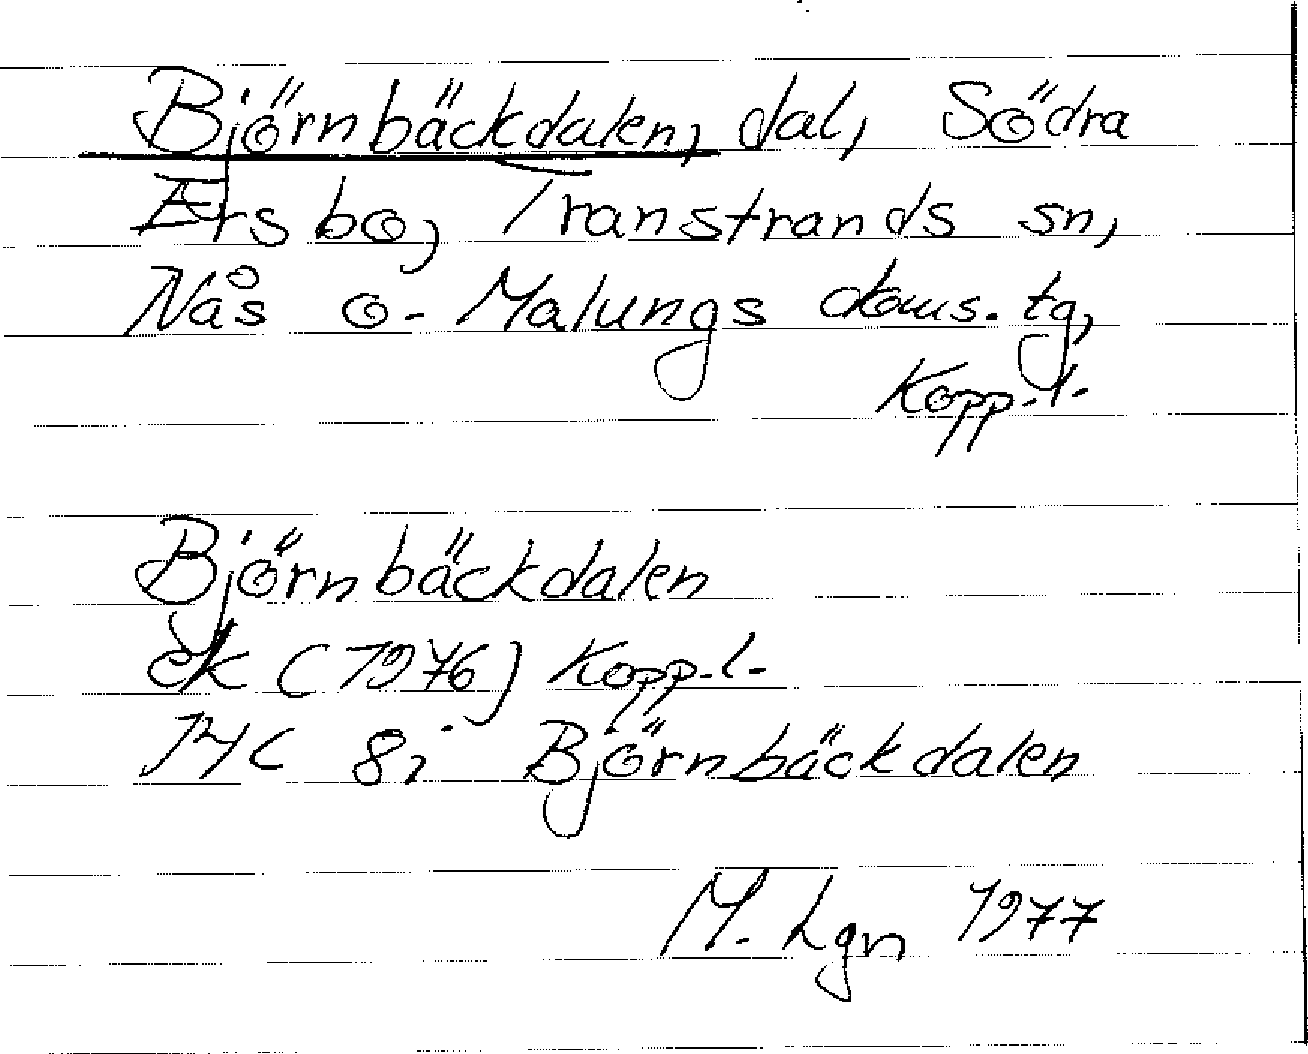 Björnbäckdalen, dal, Södra
Ersbo, Transtrands sn,
Nås o. Malungs doms. tg,
Kopp. l.
Björnbäckdalen
ek (1976) Kopp. l.
14C 8i Björnbäckdalen
M. Lgn 1977